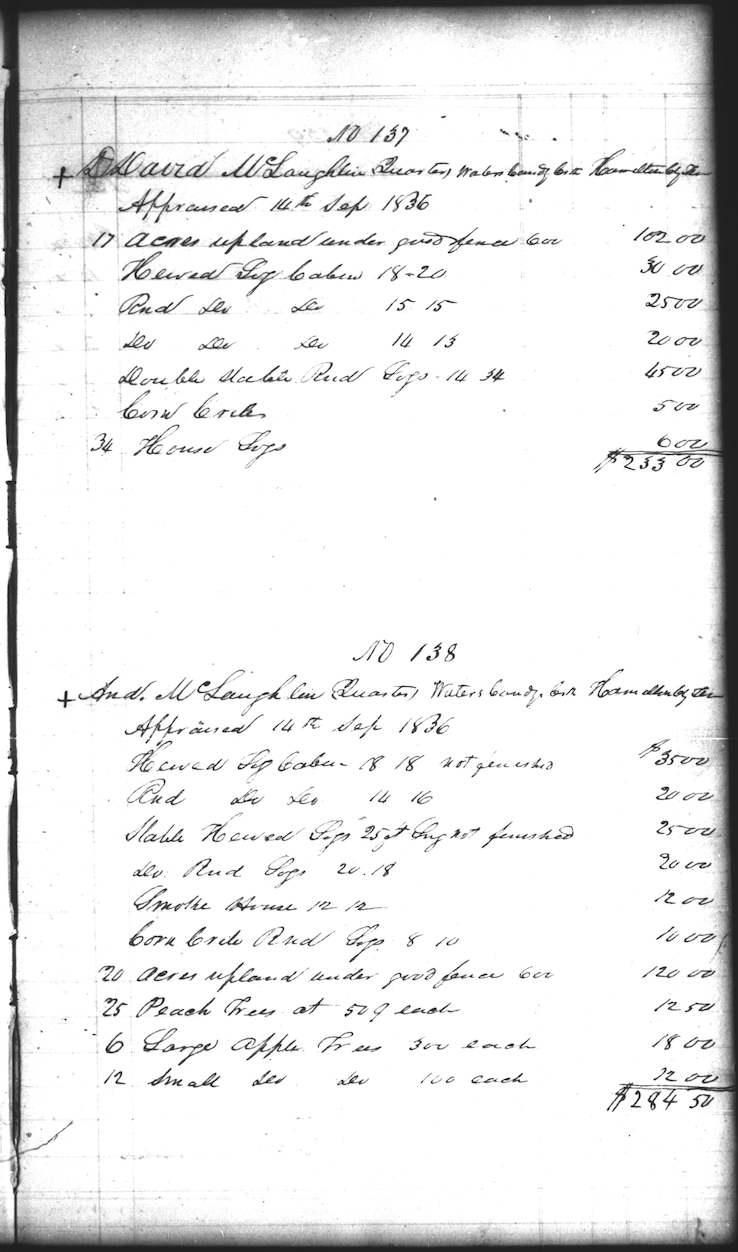 NO 137
+ David McLaughlin Quarter, Waters Candy Crk Hamilton Cty Ten
Appraised 14th Sep 1836
17 Acres upland under good fence 600 102 00
Hewed Log Cabin 18-20 30 00
Rnd Do Do 15 15 25 00
Do Do Do 14 13 20 00
Double Stable Rnd Logs - 14 34 45 00
Corn Crib 5 00
34 House Logs 6 00
$233 00
NO 138
+ And. McLaughlin Quarter, Waters Candy. Crk Hamilton Cty Ten
Appraised 14th Sep 1836
Hewed Log Cabin - 18 18 not finished $35 00
Rnd Do Do 14 16 20 00
Stable Hewed Logs 25 ft Lng not finished 25 00
Do. Rnd Logs 20.18 20 00
Smoke House 12 12 12 00
Corn Crib Rnd Logs 8 10 10 00
20 Acres upland under good fence 600 120 00
25 Peach Trees at 50¢ each 12 50
6 Large Apple Trees 300 each 18 00
12 Small Do Do 100 each 12 00
$284 50